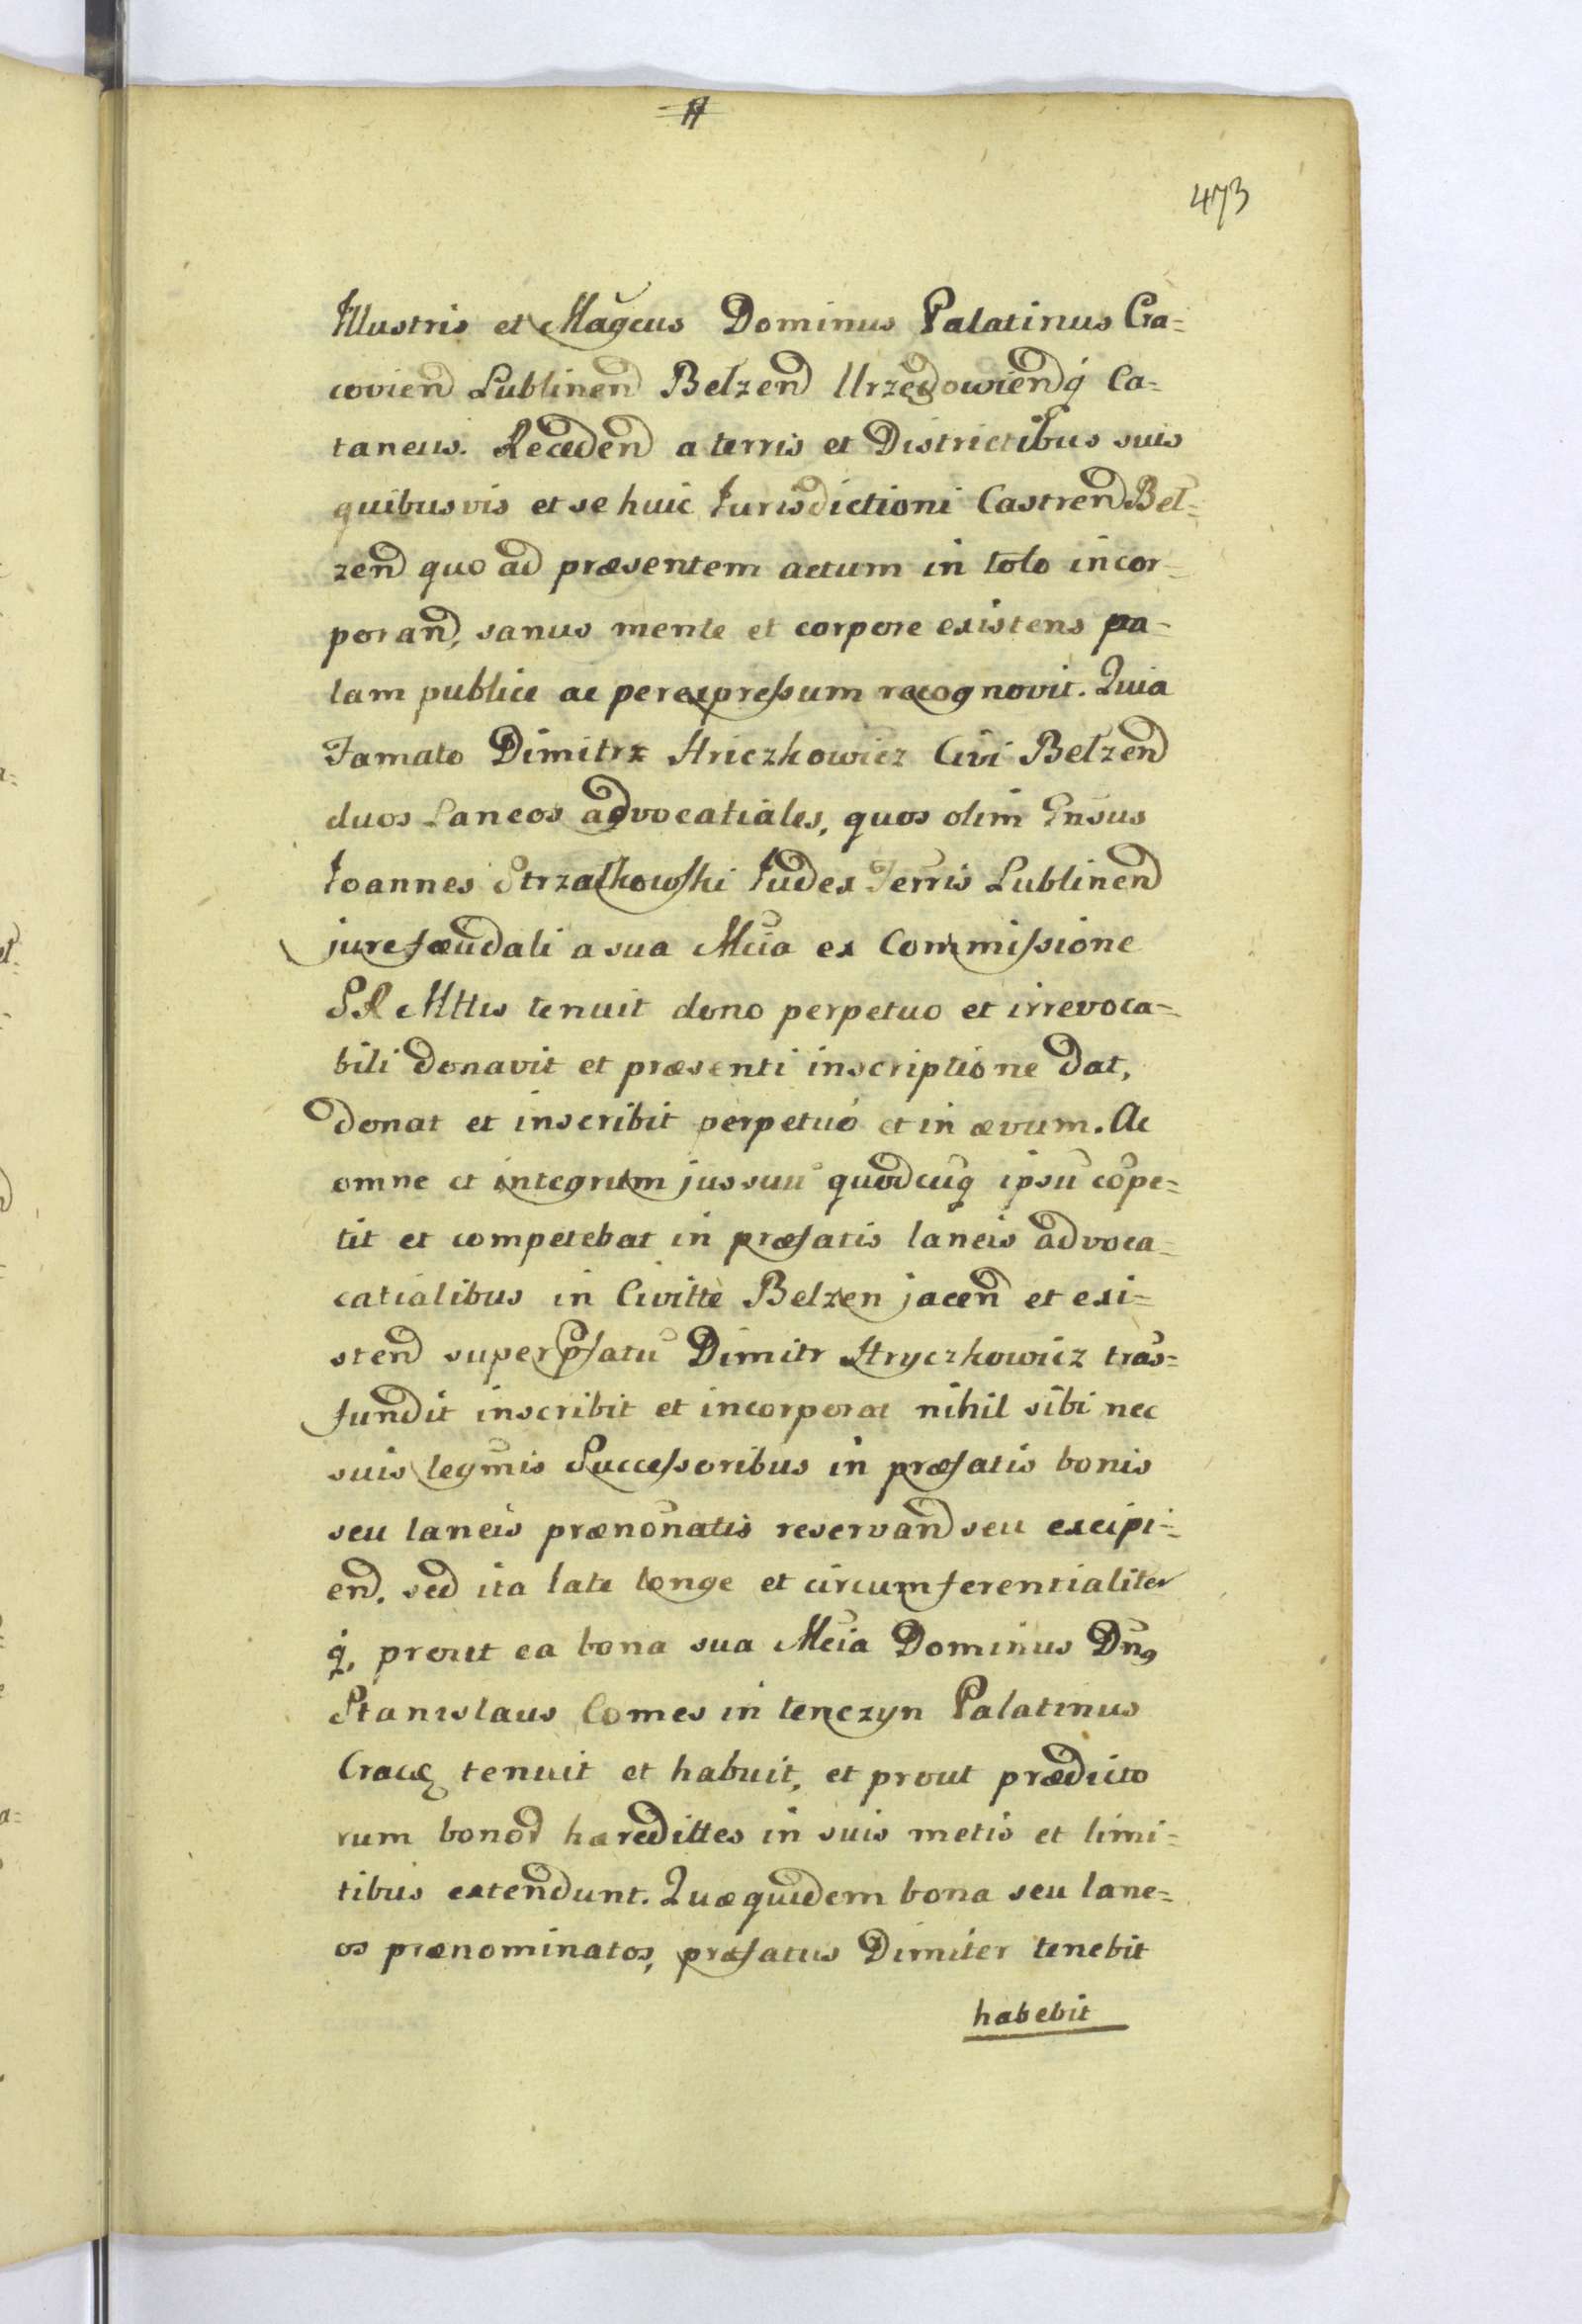 473
Illustris et Magcus Dominus Palatinus Cra=
covien Lublinen Belzen Urzędowienq Ca=
taneus. Receden a terris et Districtibus suis
quibusvis et se huic Jurisdictioni Castren Bel=
zen quo ad præsentem actum in toto incor=
poran, sanus mente et corpore existens pa=
lam publice ac per expressum recognovit. Quia
Famato Dimitrz Hriczkowicz Civi Belzen
duos Laneos advocatiales, quos olim Gnsus
Joannes Strzałkowski Judex Terris Lublinen
jure fæudali a sua Mcia ex Commissione
S R Mttis tenuit dono perpetuo et irrevoca=
bili donavit et præsenti inscriptione dat,
donat et inscribit perpetuo et in ævum. Ac
omne et integrum jus suu quodcuq ipsu cope=
tit et competebat in præfatis laneis advoca=
catialibus in Civitte Belzen jacen et exi=
sten super pfatu Dimitr Hryczkowicz tras=
fundit inscribit et incorporat nihil sibi nec
suis legmis Successoribus in præfatis bonis
seu laneis prænonatis reservan seu excipi=
en. sed ita late longe et circumferentialiter
q, prout ea bona sua Mcia Dominus Dng
Stanislaus Comes in tenczyn Palatinus
tenuit et habuit, et prout prædicto
rum bonor haredittes in suis metis et limi=
tibus extendunt. Quæquidem bona seu lane=
os prænominatos, præfatus Dimiter tenebit
habebit